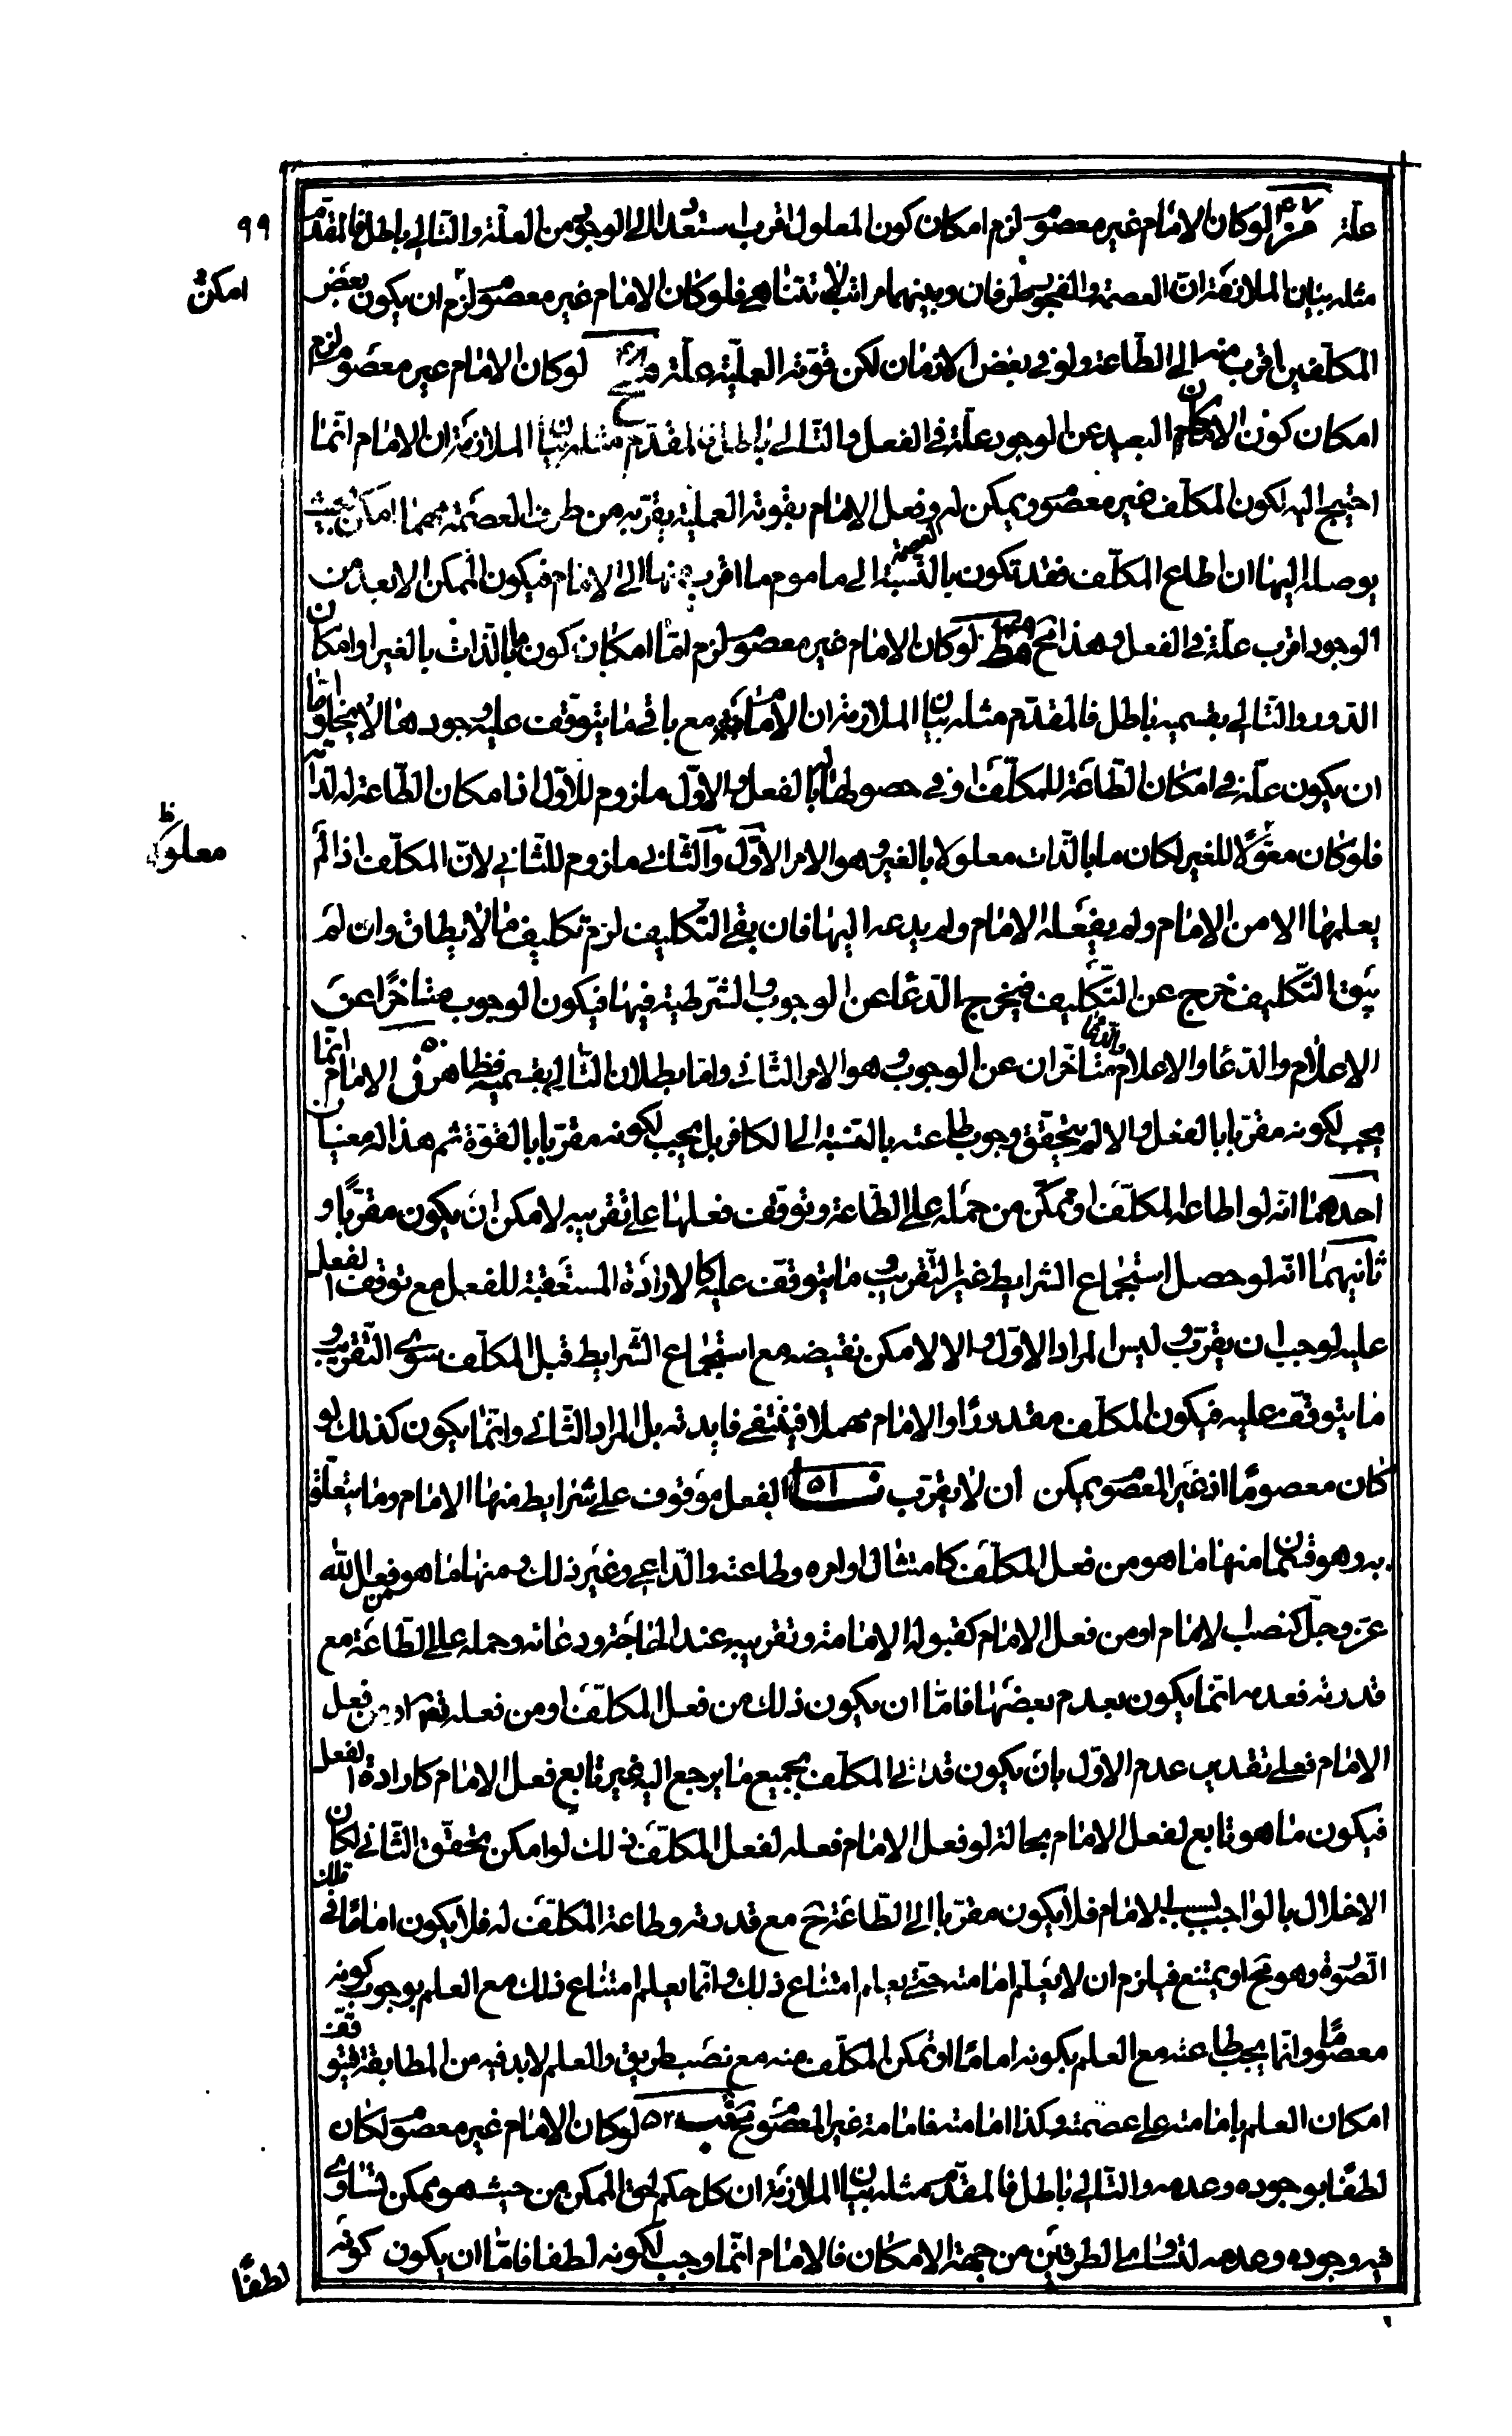 ٩٩
علة مز ٤٧ لو كان الامام غير معصوم لزم امكان كون المعلول اقرب استعدادا الى الوجود من العلة والتالي باطل فالمقدم
امكن
مثله بيان الملازمة ان العصمة والفجور طرفان وبينهما مراتب لا تتناهى فلو كان الامام غير معصوم لزم ان يكون بعض
المكلفين اقرب منه الى الطاعة ولو في بعض الازمان لكن قوته العملية علة مح لو كان الامام غير معصوم لزم
امكان كون الامكان البعيد عن الوجود علة في الفعل والتالي باطل فالمقدم مثله بيان الملازمة ان الامام انما
احتيج اليه لكون المكلف غير معصوم ويمكن له وفعل الامام بقوته العملية يقربه من طرف العصمة مهما امكن بحيث
يوصله اليها ان اطاع المكلف فقد تكون العصمة بالنسبة الى ماموم ما اقرب منها الى الامام فيكون الممكن الابعد من
الوجود اقرب علة في الفعل وهذا مح مط لو كان الامام غير معصوم لزم اما امكان كون ما بالذات بالغير او امكان
الدور والتالي بقسميه باطل فالمقدم مثله بيان الملازمة ان الامام مع باقي ما يتوقف عليه وجودها لا يخلو اما
ان يكون علة في امكان الطاعة للمكلف او في حصولها له بالفعل والاول ملزوم للاول اذ امكان الطاعة له لذاته
معلولا ظ
فلو كان معلولا للغير لكان ما بالذات معلولا بالغير وهو الامر الاول والثاني ملزوم للثاني لان المكلف اذا لم
يعلمها الا من الامام ولم يفعله الامام ولم يدعه اليها فان بقي التكليف لزم تكليف ما لا يطاق وان لم
يبق التكليف خرج عن التكليف فيخرج الدعا عن الوجوب والشرطية فيها فيكون الوجوب متاخرا عن
الاعلام والدعا والاعلام والدعا متاخران عن الوجوب وهو الامر الثاني واما بطلان التالي بقسميه فظاهر ن ٥٠ الامام انما
يجب لكونه مقربا بالفعل والا لم يتحقق وجوب طاعته بالنسبة الى الكافر بل يجب لكونه مقربا بالقوة ثم هذا له معنيان
احدهما انه لو اطاعه المكلف او تمكن من حمله على الطاعة وتوقف فعلها على تقريبه لامكن ان يكون مقربا و
ثانيهما انه لو حصل استجماع الشرايط غير التقريب وما يتوقف عليه كالارادة المستعقبة للفعل مع توقف الفعل
عليه لوجب ان يقرب وليس المراد الاول والا لامكن نقيضه مع استجماع الشرايط قبل المكلف سوى التقريب و
ما يتوقف عليه فيكون المكلف معذورا والامام مهملا فينتفي فايدته بل المراد الثاني وانما يكون كذلك لو
كان معصوما اذ غير المعصوم يمكن ان لا يقرب نا ٥١ الفعل موقوف على شرايط منها الامام وما يتعلق
به وهو قسمان منها ما هو من فعل المكلف كامتثال اوامره وطاعته والدواعي وغير ذلك ومنها ما هو من فعل الله
عز وجل كنصب الامام او من فعل الامام كقبوله الامامة وتقريبه عند الحاجة ودعائه وحمله على الطاعة مع
قدرته فعدمه انما يكون بعدم بعضها فاما ان يكون ذلك من فعل المكلف او من فعله تعالى او من فعل
الامام فعلى تقدير عدم الاول بان يكون قد اتى المكلف بجميع ما يرجع اليه غير تابع فعل الامام كارادة الفعل
فيكون ما هو تابع لفعل الامام بحالة لو فعل الامام فعله لفعل المكلف ذلك لو امكن تحقق الثاني لكان
الاخلال بالواجب بسبب الامام فلا يكون مقربا الى الطاعة ح مع قدرته وطاعة المكلف له فلا يكون اماما في تلك
الصورة وهو مح او يمتنع فيلزم ان لا يعلم امامته حتى يعلم امتناع ذلك وانما يعلم امتناع ذلك مع العلم بوجوب كونه
معصوما وانما يجب طاعته مع العلم بكونه اماما او تمكن المكلف منه مع نصب طريق والعلم لا بد فيه من المطابقة فيتوقف
امكان العلم بامامته على عصمته وكذا امامته فامامة غير المعصوم مح نب ٥٢ لو كان الامام غير معصوم لكان
لطفا بوجوده وعدمه والتالي باطل فالمقدم مثله بيان الملازمة ان كل حكم لحق الممكن من حيث هو ممكن تساوى
فيه وجوده وعدمه لتساوى الطرفين من جهة الامكان فالامام انما وجب لكونه لطفا فاما ان يكون كونه
لطفا